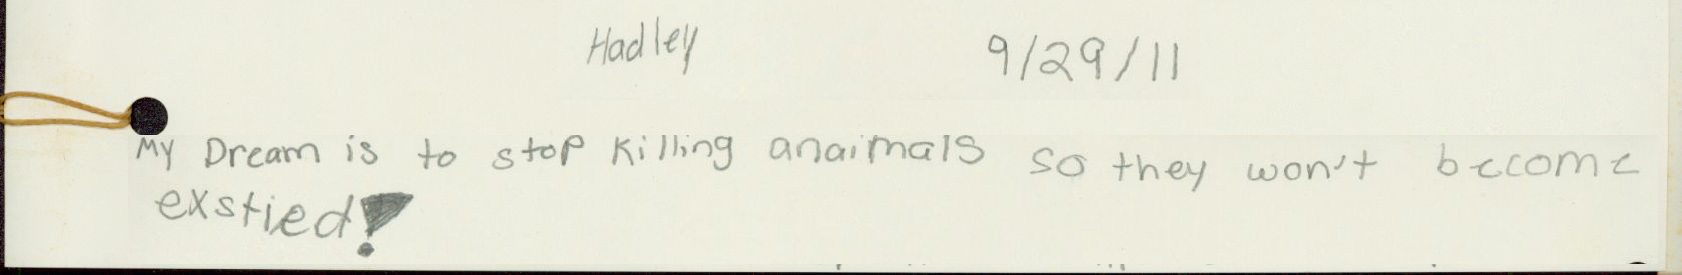 Hadley 9/29/11
My Dream is to stop killing anaimals so they won't become
exstied!